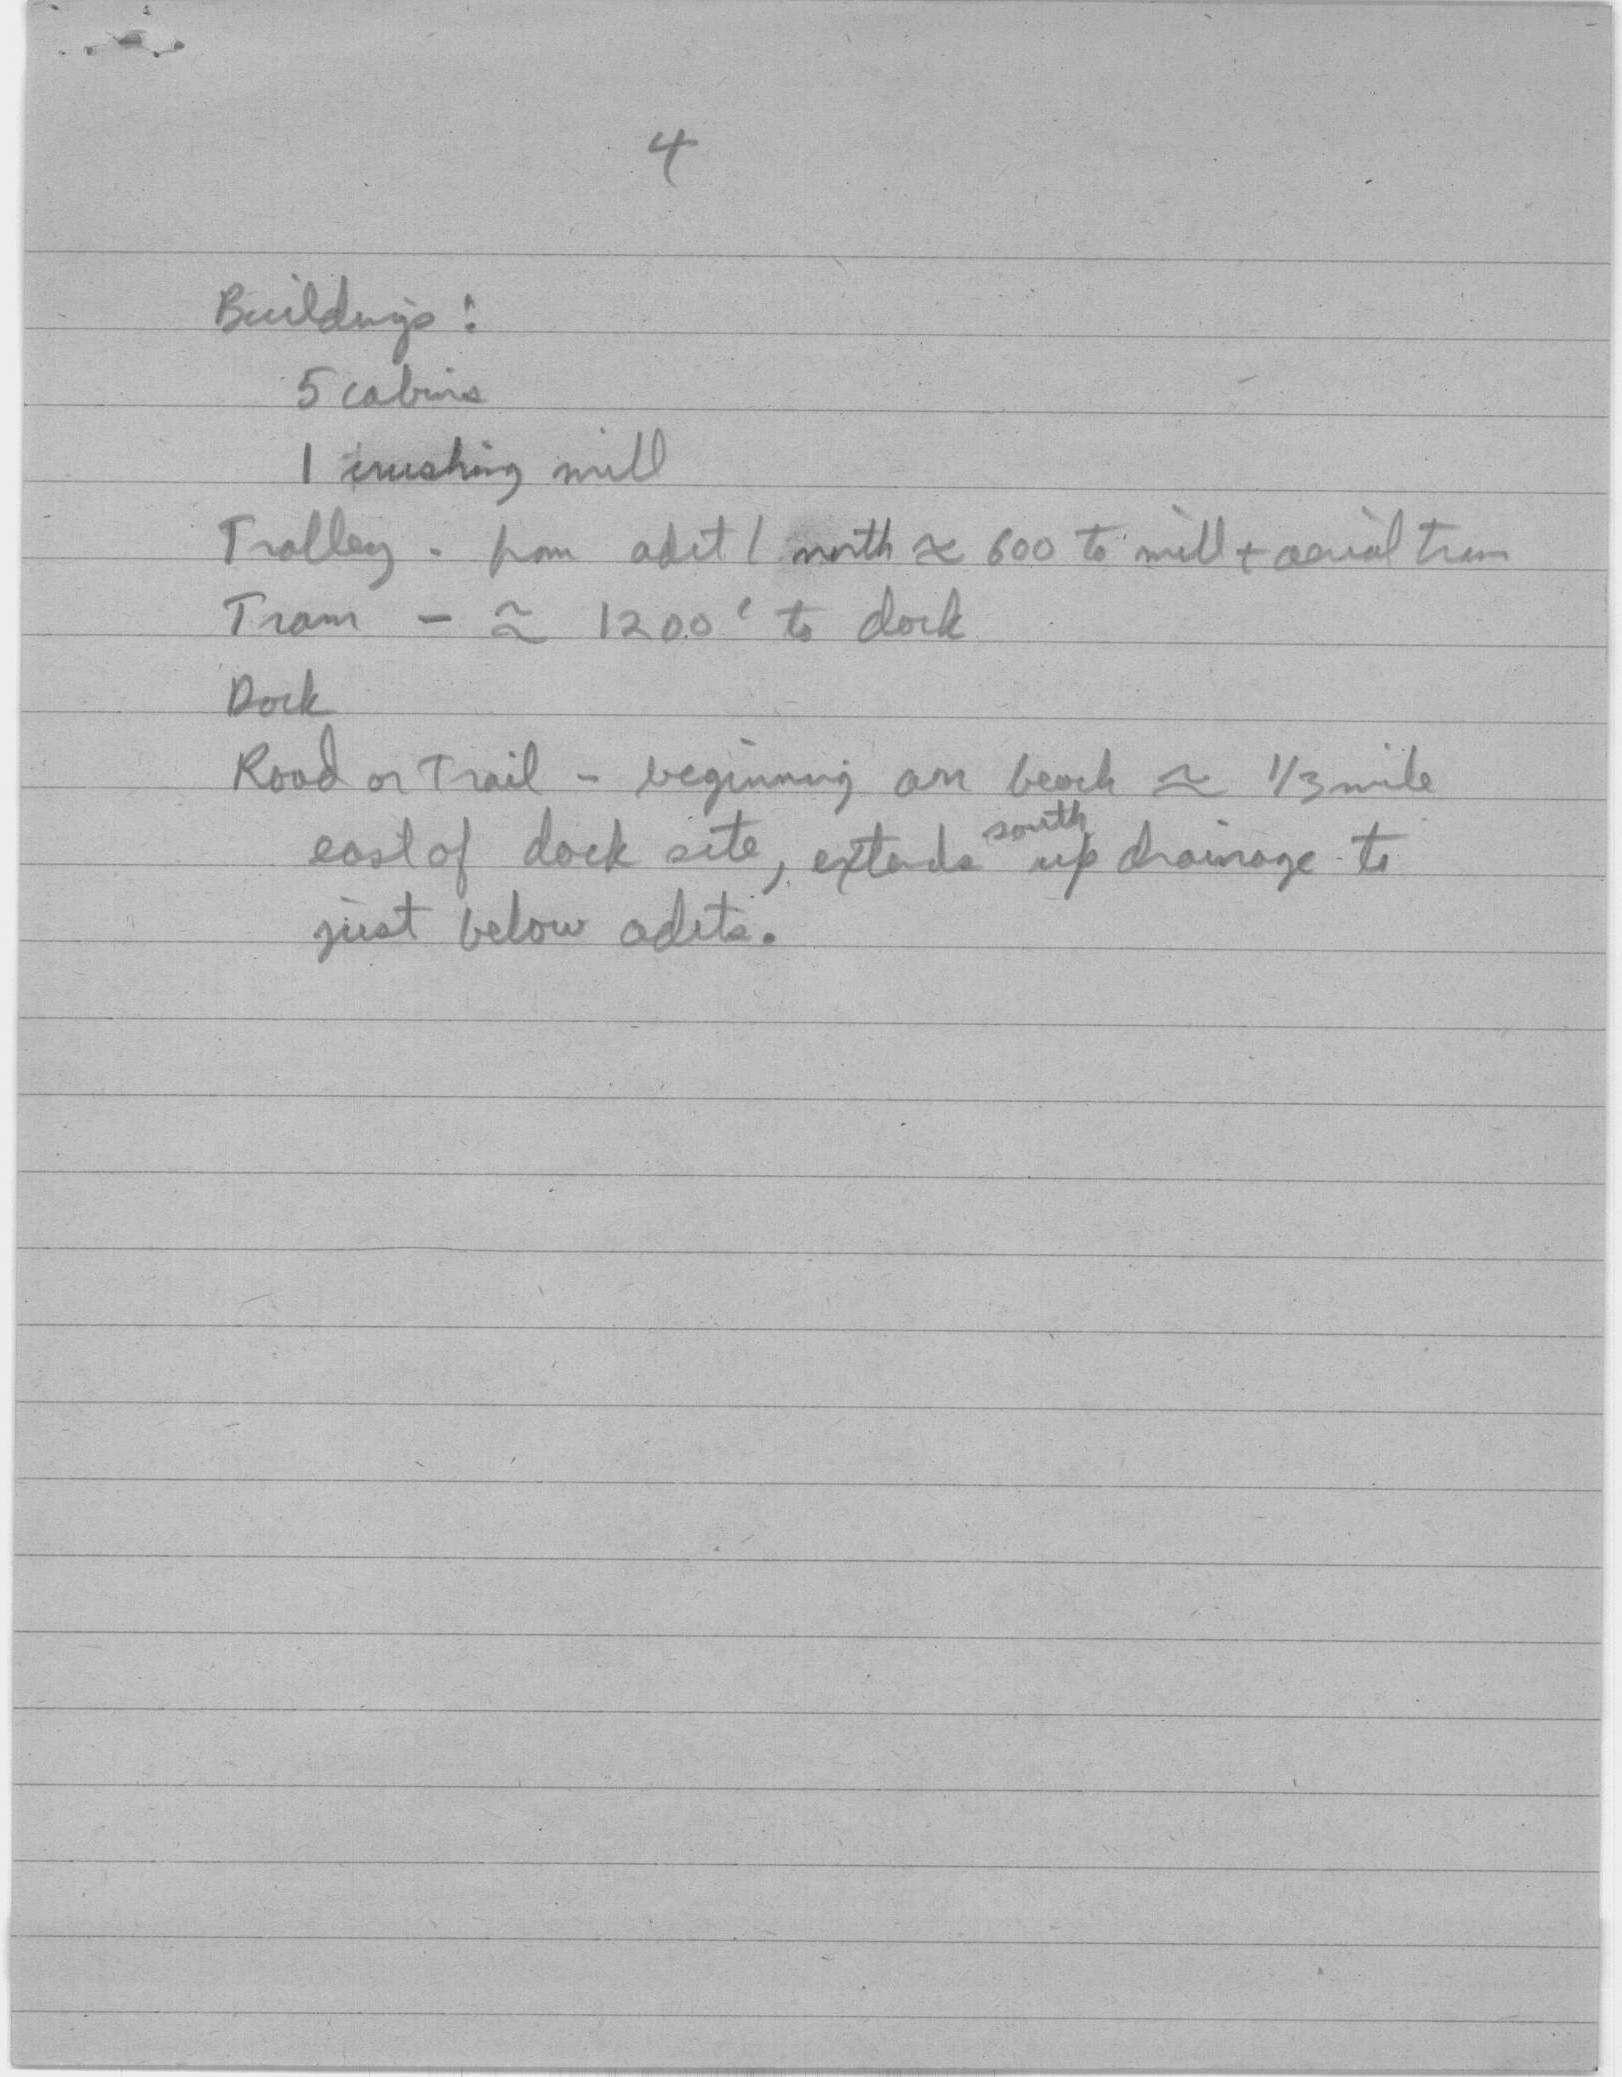 4
Buildings:
5 cabins
1 crushing mill
Trolley - from adit 1 north ≈ 600 to mill + aerial tram
Tram - ≈ 1200' to dock
Dock
Road or Trail - beginning on beach ≈ 1/3 mile
east of dock site, extends south up drainage to
just below adits.